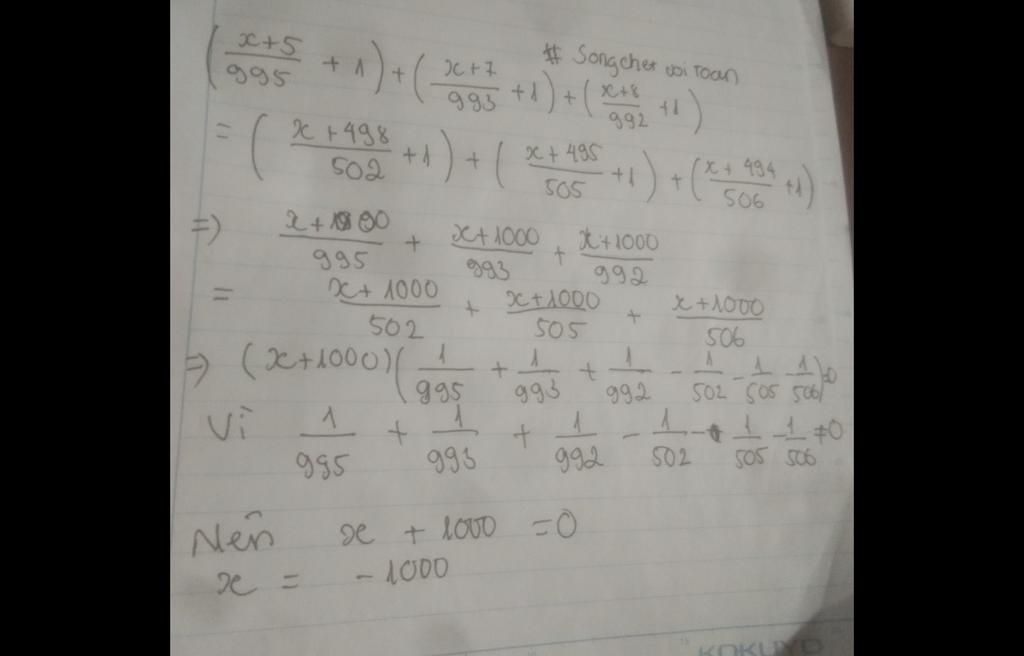 (x+5/995 + 1) + (x+7/993 + 1) + (x+8/992 + 1)
# Songchet voi Toan
= (x+498/502 + 1) + (x+495/505 + 1) + (x+494/506 + 1)
=> x+1000/995 + x+1000/993 + x+1000/992
= x+1000/502 + x+1000/505 + x+1000/506
=> (x+1000)(1/995 + 1/993 + 1/992 - 1/502 - 1/505 - 1/506)=0
Vì 1/995 + 1/993 + 1/992 - 1/502 - 1/505 - 1/506 ≠0
Nên x + 1000 = 0
x = -1000
KOKUYO